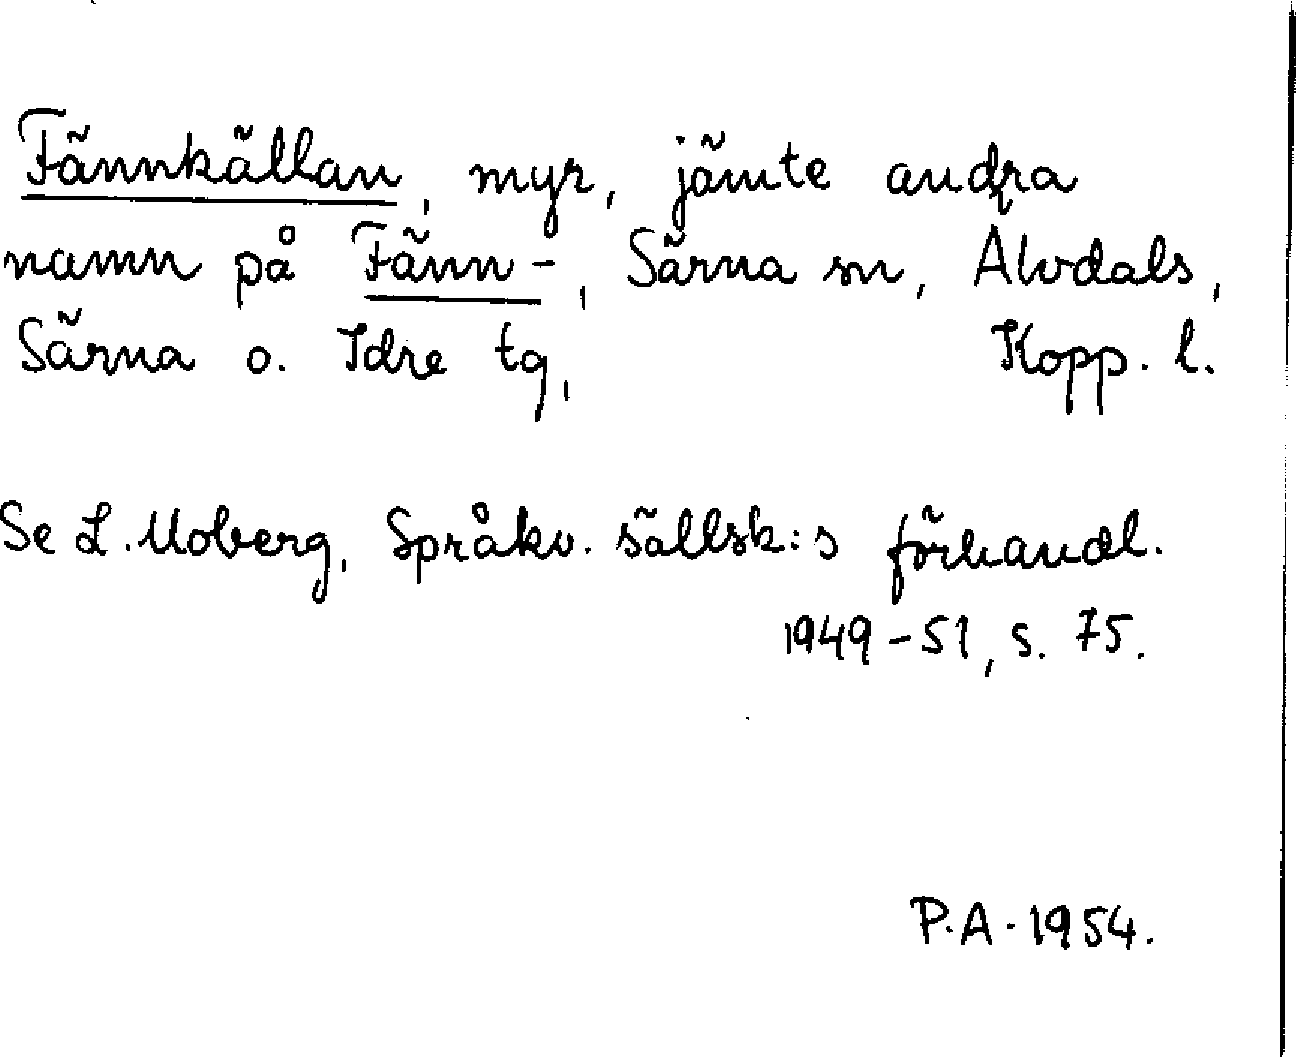 Fännkällan, myr, jämte andra
namn på Fänn-, Särna sn, Älvdals,
Särna o. Idre tg, Kopp. l.
Se L. Moberg, Språkv. sällsk:s förhandl.
1949-51, s. 75.
P.A. 1954.